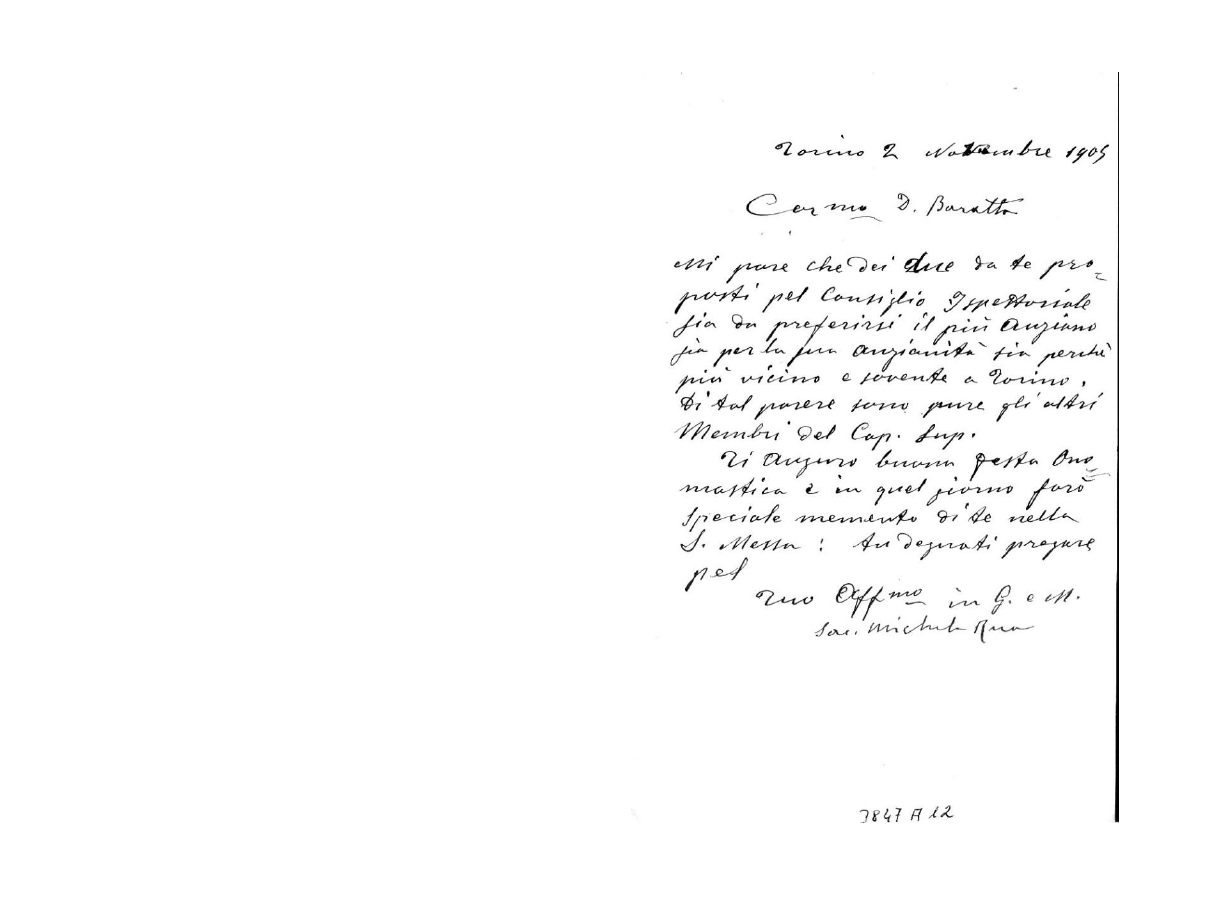 Torino 2 Novembre 1905
Carmo D. Baratta
Mi pare che dei due da te pro-
posti pel Consiglio Ispettoriale
sia da preferirsi il più Anziano
sia per la sua Anzianità sia perchè
più vicino e sovente a Torino.
Di tal parere sono pure gli altri
Membri del Cap. Sup.
Ti Auguro buona festa Ono-
mastica e in quel giorno farò
speciale memento di te nella
S. Messa: tu degnati pregare
pel
Tuo Affmo in G. e M.
Sac. Michele Rua
3847 A 12